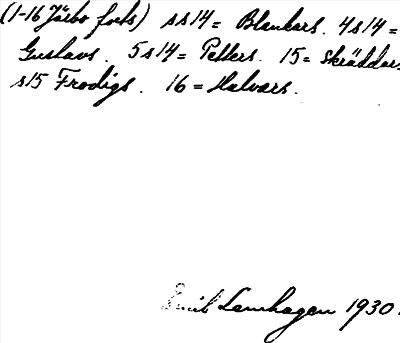 (1-16 Järbo sock) s s 14 = Blankars. 4 s 14 =
Gustavs. 5 s 14 = Petters. 15 = Skräddars
s 15 Frodigs. 16 = Halvars.
Emil Lenhagen 1930.